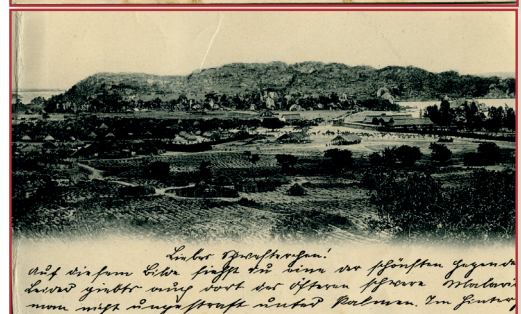 Liebes Schwesterchen!
Auf diesem Bilde siehst du eine der schönsten Gegende
Leider giebts auch dort des öfteren schwere Malari
man nicht ungestraft unter Palmen. Im Hinter